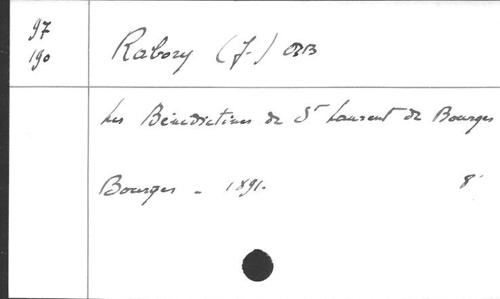 97
190
Rabory (J.) OSB
Les Bénédictines de St Laurent de Bourges
Bourges - 1891. 8°